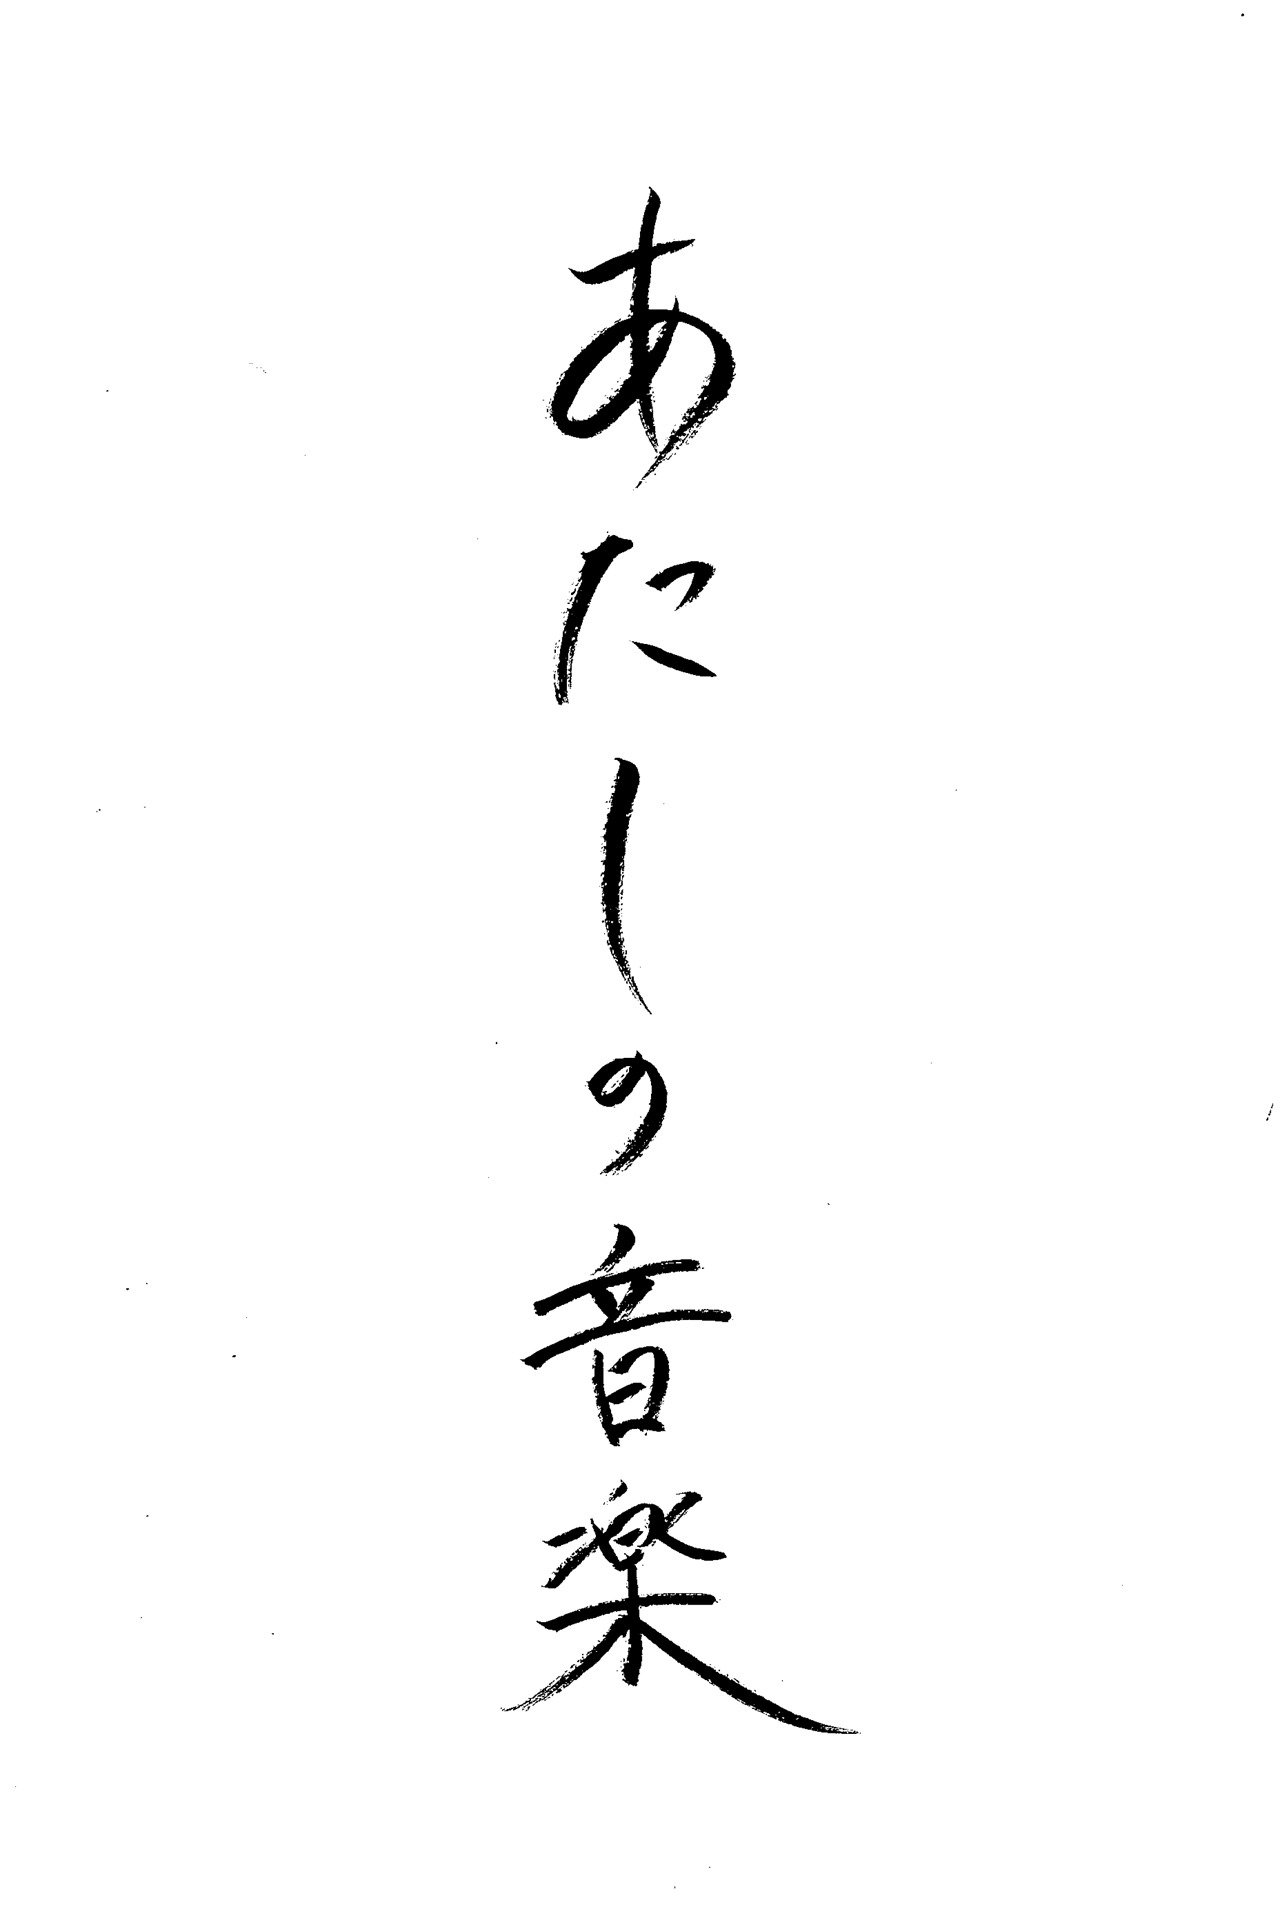 あたしの音楽